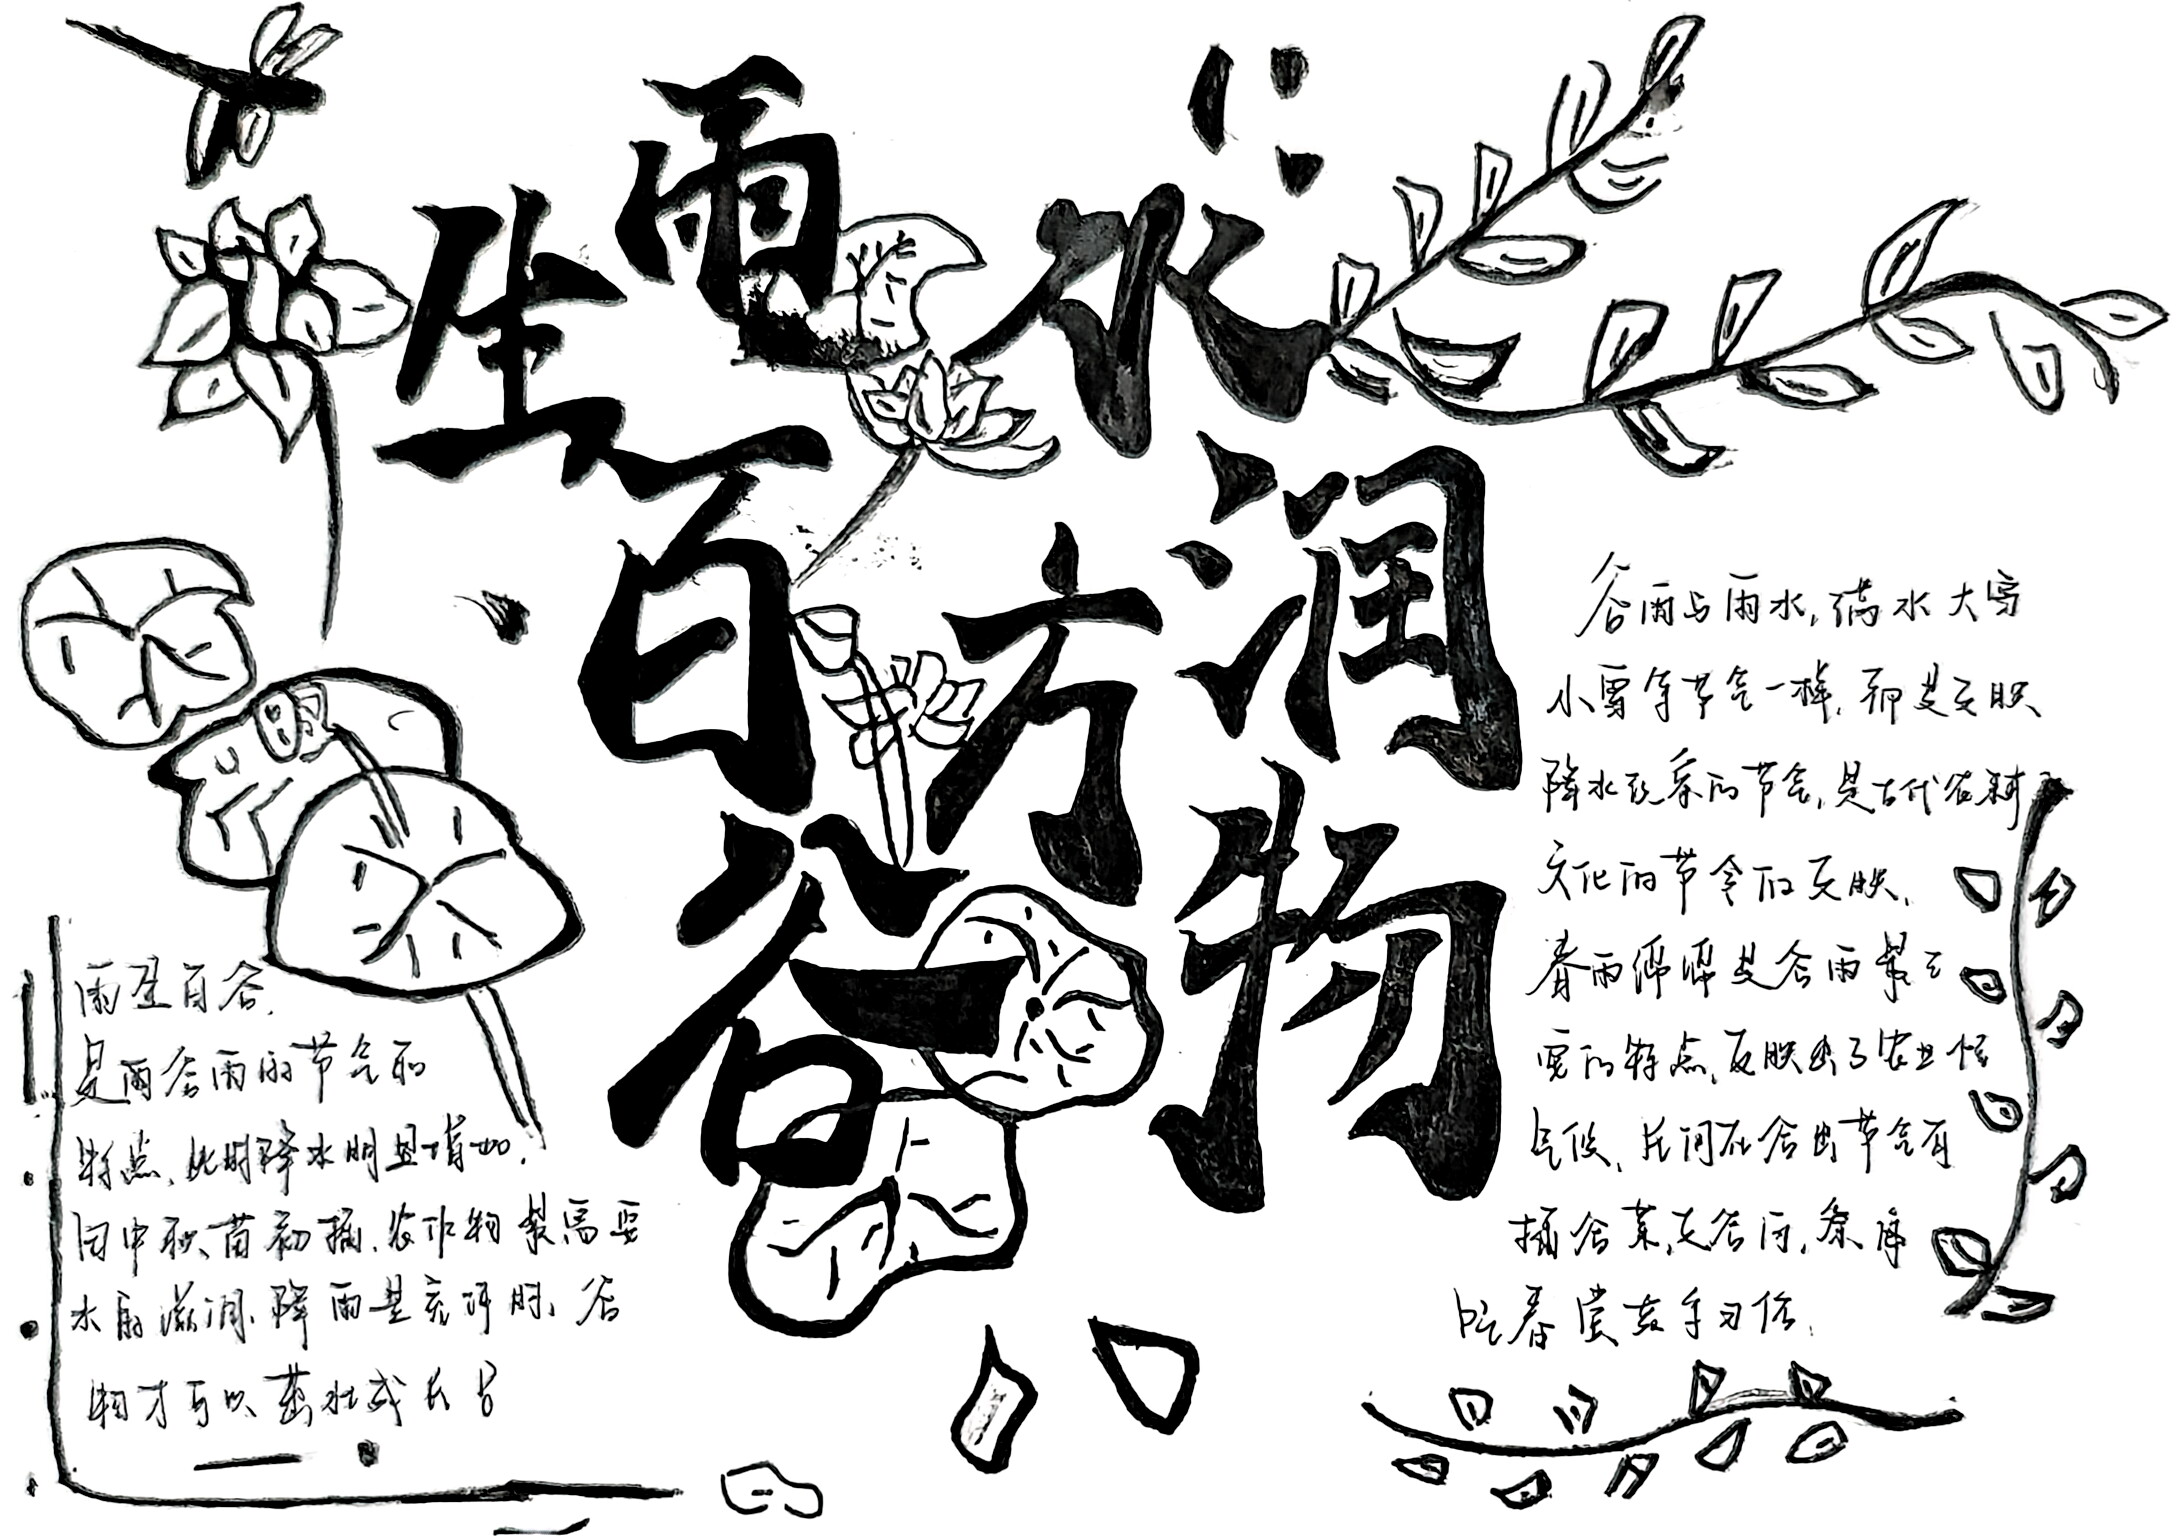 雨生百谷
水润万物
雨生百谷,
是雨谷雨的节气的
特点,此时降水明显增加,
田中秧苗初插,农作物最需要
水的滋润,降雨量充许时,谷
物才可以茁壮成长
谷雨与雨水,满水大雪
小雪等节气一样,都是反映
降水现象的节气,是古代农耕
文化的节令的反映,
春雨绵绵是谷雨最主
要的特点,反映出了农业
气候,民间在谷雨节气有
摘谷茶,走谷雨,祭海
吃春赏花等习俗,